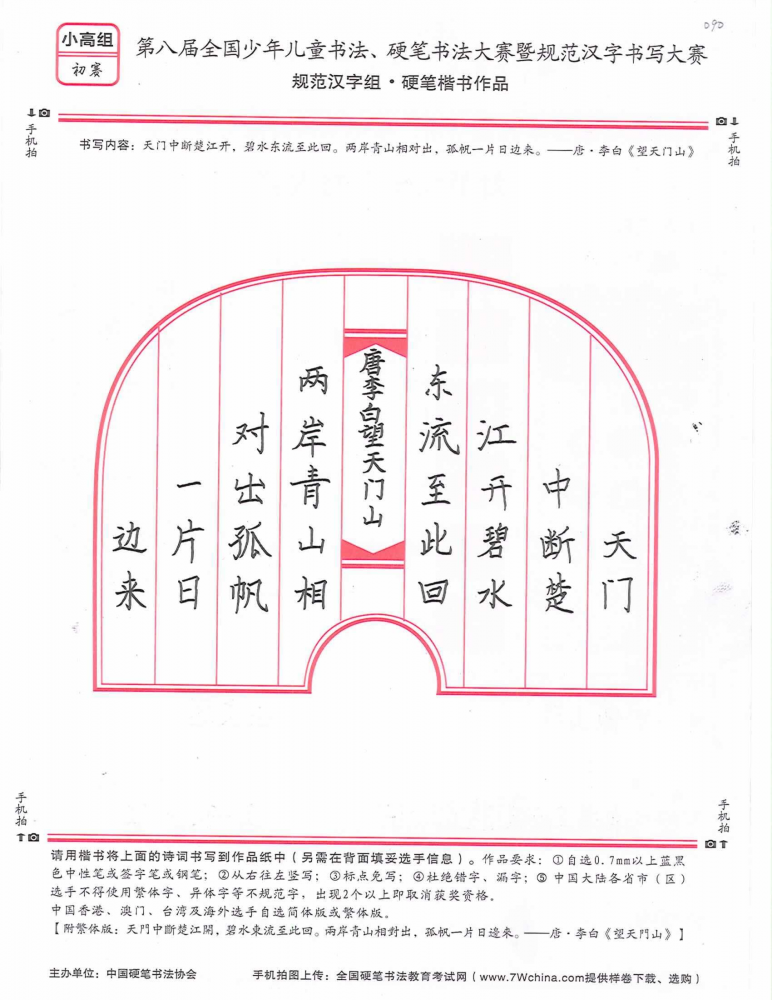 090
小高组
初赛
第八届全国少年儿童书法、硬笔书法大赛暨规范汉字书写大赛
规范汉字组·硬笔楷书作品
手机拍
手机拍
书写内容：天门中断楚江开，碧水东流至此回。两岸青山相对出，孤帆一片日边来。——唐·李白《望天门山》
天门
中断楚
江开碧水
东流至此回
唐李白望天门山
两岸青山相
对出孤帆
一片日
边来
手机拍
手机拍
请用楷书将上面的诗词书写到作品纸中（另需在背面填妥选手信息）。作品要求：①自选0.7mm以上蓝黑
色中性笔或签字笔或钢笔；②从右往左竖写；③标点免写；④杜绝错字、漏字；⑤中国大陆各省市（区）
选手不得使用繁体字、异体字等不规范字，出现2个以上即取消获奖资格。
中国香港、澳门、台湾及海外选手自选简体版或繁体版。
【附繁体版：天門中斷楚江開，碧水東流至此回。兩岸青山相對出，孤帆一片日邊來。——唐·李白《望天門山》】
主办单位：中国硬笔书法协会
手机拍图上传：全国硬笔书法教育考试网（www.7Wchina.com提供样卷下载、选购）